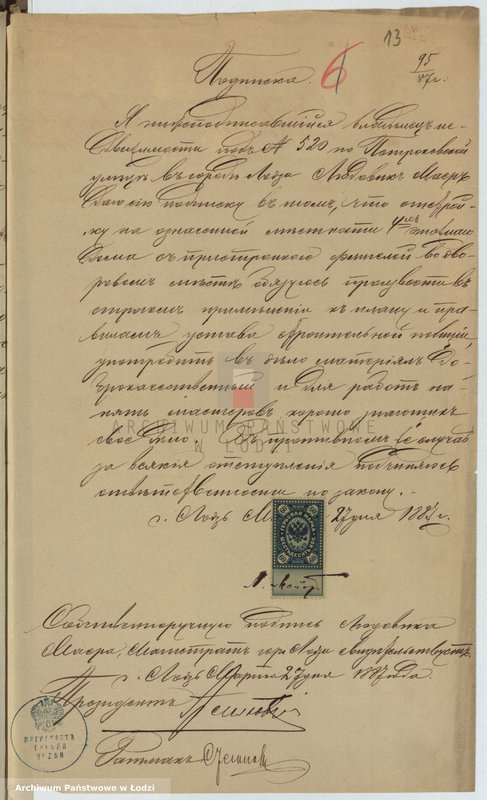 13
6
95
87 г.
Подписка.
Я нижеподписавшійся владѣлецъ не-
движимости подъ № 520 по Петроковской
улицѣ въ городѣ Лодзи Людовикъ Маеръ
даю сію подписку въ томъ, что
на означенной мѣстности 4
дома съ пристройкою флигелей во дво-
ровомъ мѣстѣ обязуюсь произвести въ
строгомъ примѣненіи къ плану и пра-
виламъ устава строительной полиціи,
употребить въ дѣло матеріялъ до-
брокачественный и для работъ на-
нять мастеровъ хорошо знающихъ
свое дѣло. Въ противномъ же случаѣ
за всякія отступленія подчиняюсь
отвѣтственности по закону.
г. Лодзь 27 дня 1887 г.
60 60
60 60
Собственноручную подпись Людовика
Маера, Магистратъ гор. Лодзи свидѣтельствуетъ.
г. Лодзь Марта 27 дня 1887 года.
Президентъ
МАГИСТРАТА
ГОРОДА
ЛОДЗИ
ARCHIWUM PAŃSTWOWE
W ŁODZI
Archiwum Państwowe w Łodzi